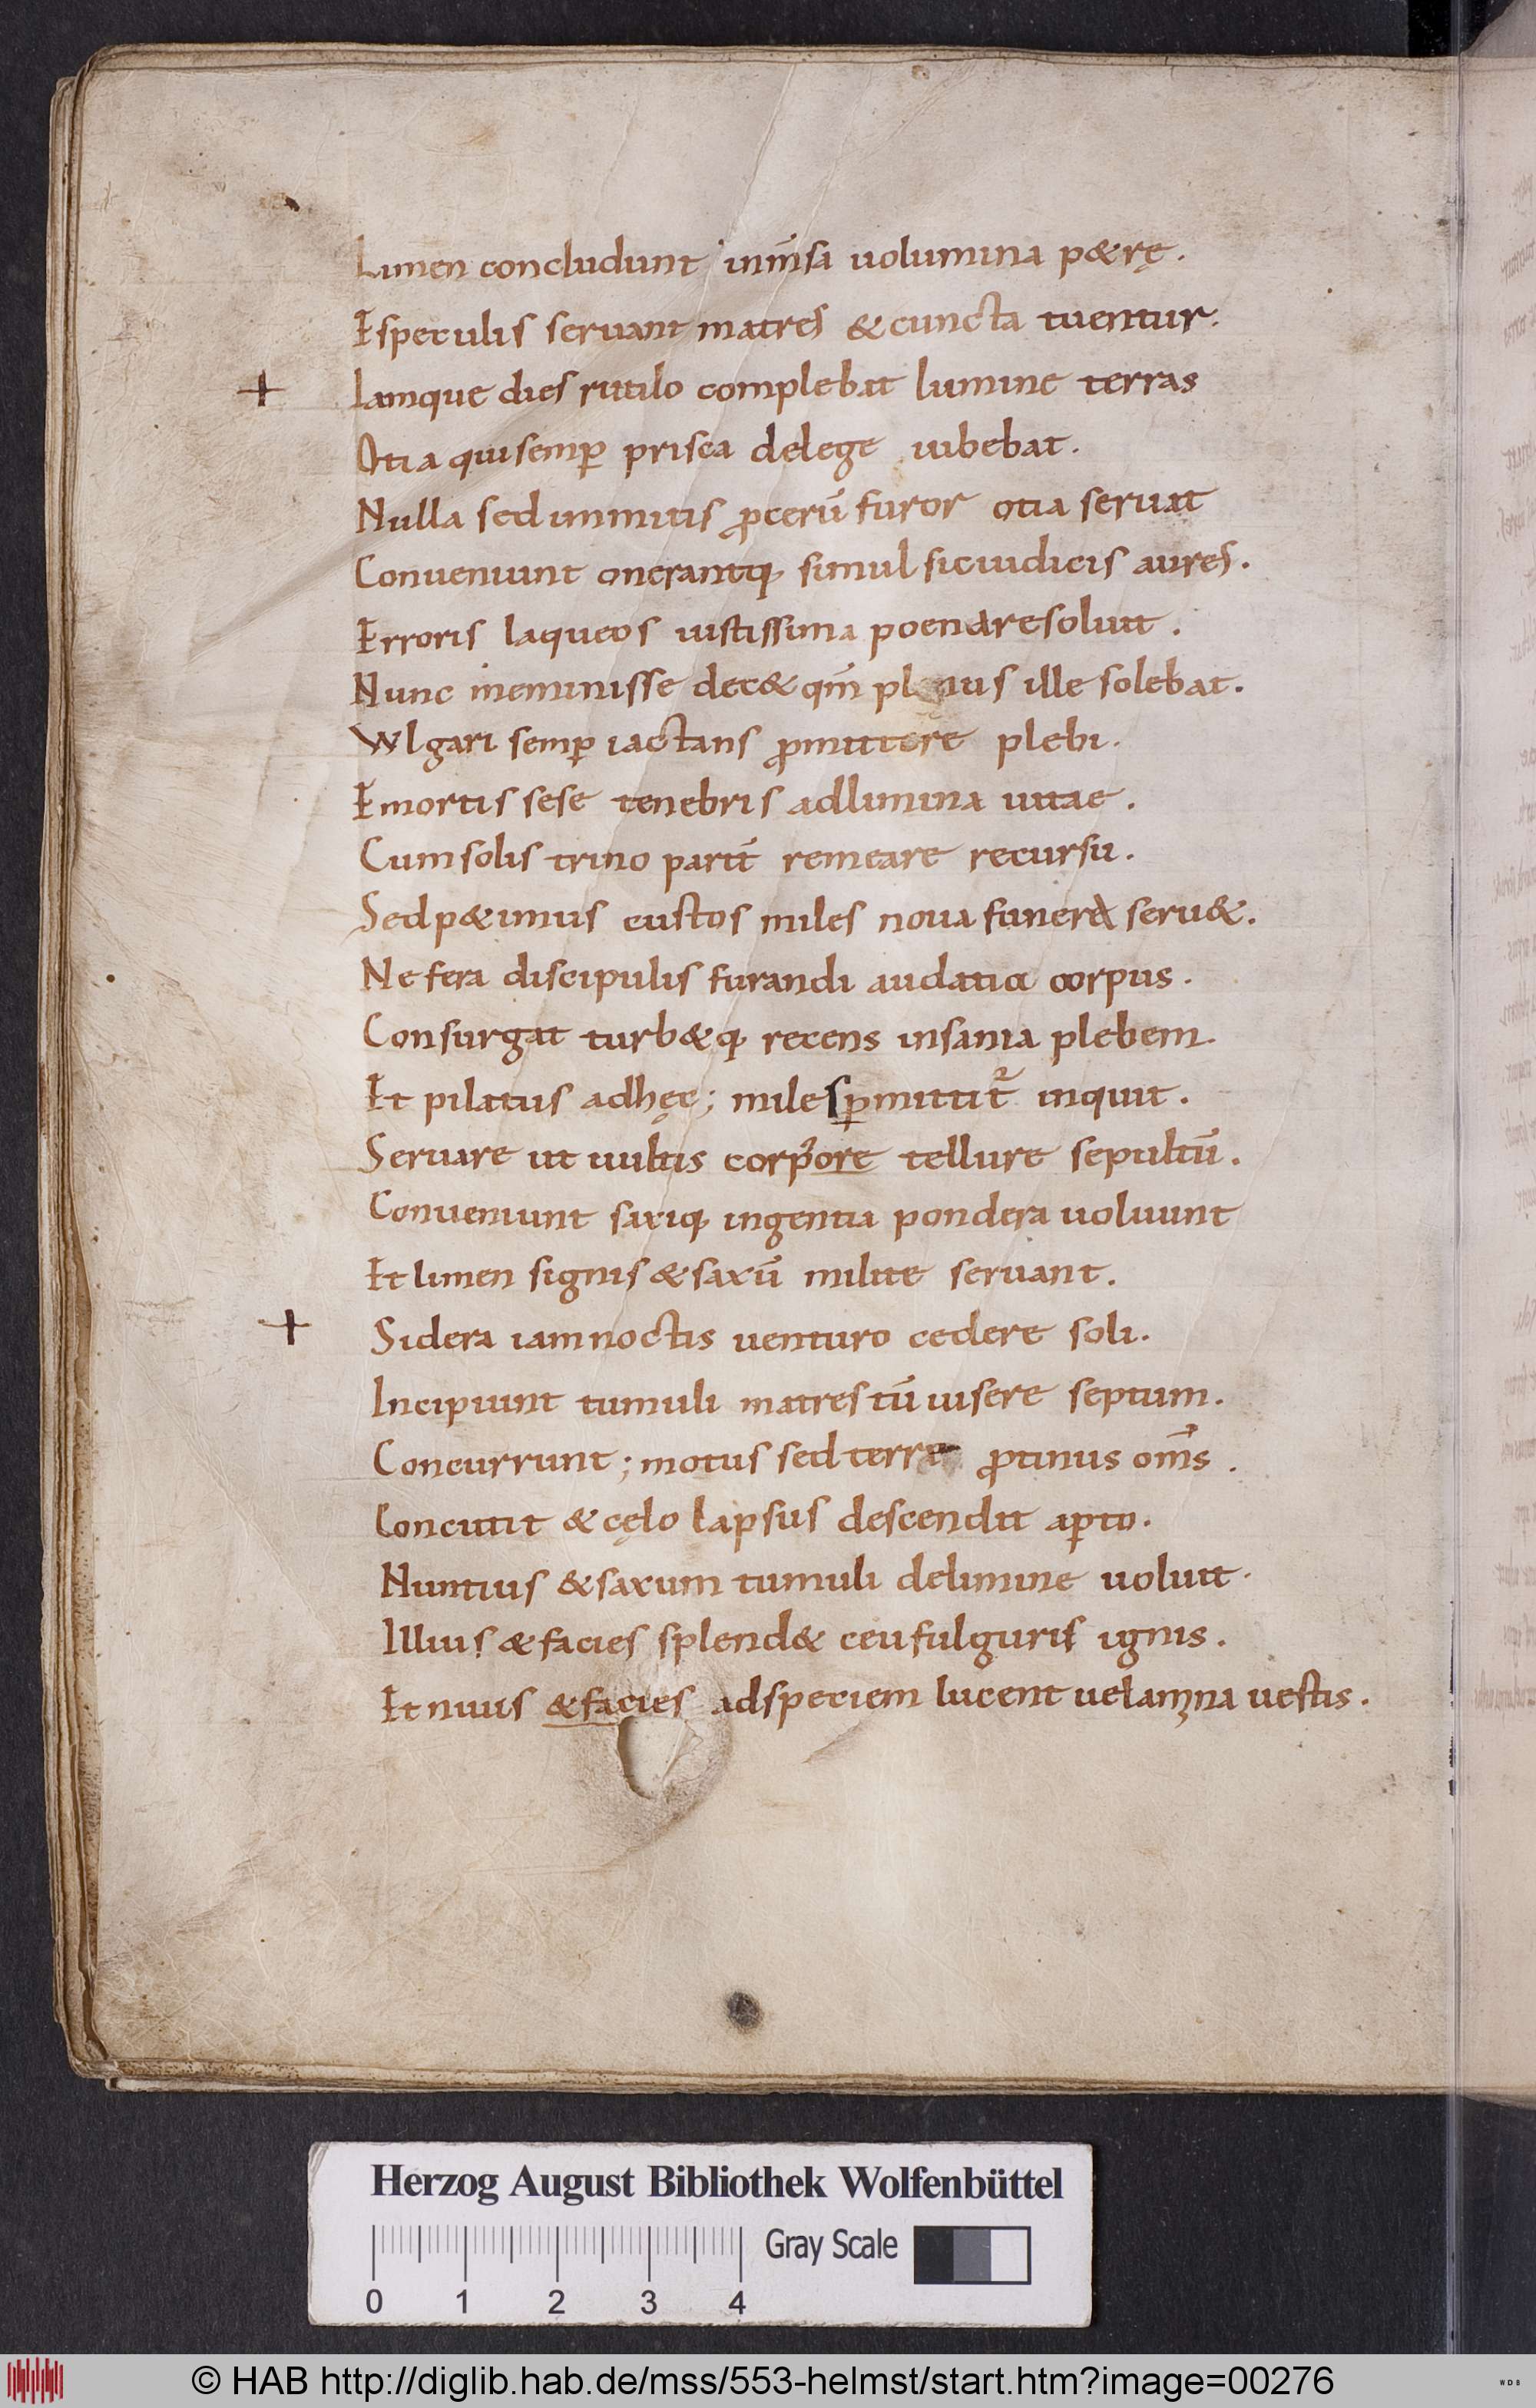 Limen concludunt inm̅sa uolumina p&rę.
E speculis seruant matres & cuncta tuentur.
+ Iamque dies rutilo complebat lumine terras
Otia qui semꝑ prisca de lege iubebat.
Nulla sed inmitis ꝓcerū furor otia seruat
Conueniunt onerantq; simul sic iudicis aures.
Erroris laqueos iustissima poena resoluit.
Nunc meminisse dec& qm̅ planus ille solebat.
Wlgari semꝑ iactans ꝓmittere plebi.
E mortis sese tenebris ad limina uitae.
Cum solis trino parit̅ remeare recursu.
Sed p&imus custos miles noua funera seru&.
Ne fera discipulis furandi audatia corpus.
Consurgat turb&q; recens insania plebem.
Et pilatus ad hęc; miles ꝑmittit᷑ inquit.
Seruare ut uultis corp̓ore tellure sepultū.
Conueniunt saxiq; ingentia pondera uoluunt
Et limen signis & saxū milite seruant.
+ Sidera iam noctis uenturo cedere soli.
Incipiunt tumuli matres tū uisere septum.
Concurrunt; motus sed terre ꝓtinus om̅s.
Concutit & cęlo lapsus descendit aꝑto.
Nuntius & saxum tumuli de limine uoluit.
Illius & facies splend& ceu fulguris ignis.
Et niuis & facies ad speciem lucent uelamina uestis.
Herzog August Bibliothek Wolfenbüttel
Gray Scale
0 1 2 3 4
© HAB http://diglib.hab.de/mss/553-helmst/start.htm?image=00276
WDB